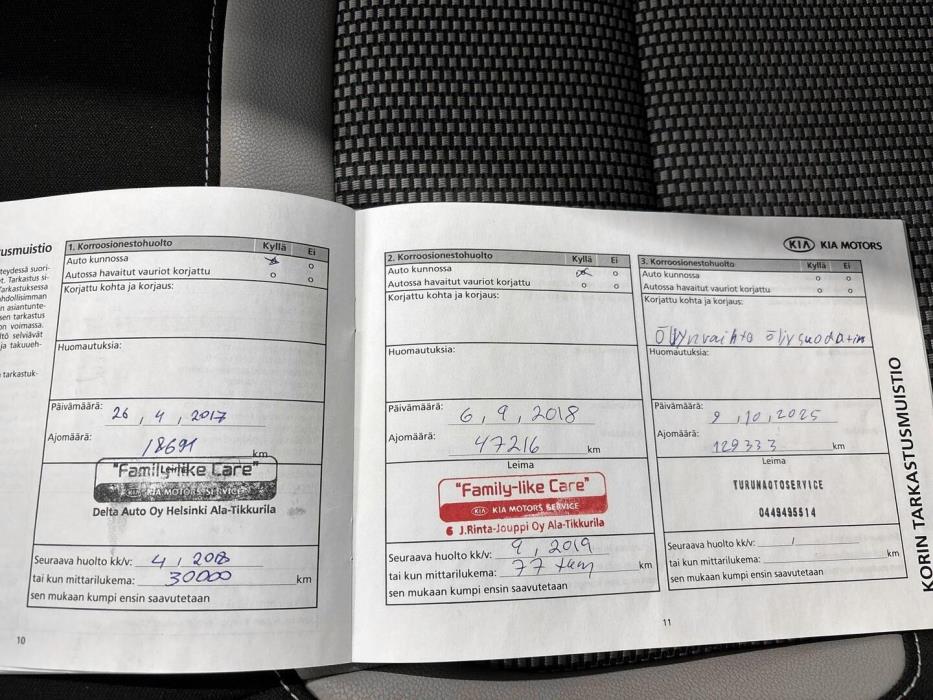 usmuistio
teydessä suori-
t. Tarkastus si-
Tarkastuksessa
ahdollisimman
n asiantunte-
sen tarkastus
on voimassa.
ltö selviävät
ja takuueh-
tarkastuk-
1. Korroosionestohuolto Kyllä Ei
Auto kunnossa
Autossa havaitut vauriot korjattu
Korjattu kohta ja korjaus:
Huomautuksia:
Päivämäärä: 26 , 4 , 2017
Ajomäärä: 18691 km
Leima
"Family-like Care"
KIA KIA MOTORS SERVICE
Delta Auto Oy Helsinki Ala-Tikkurila
Seuraava huolto kk/v: 4 , 2018
tai kun mittarilukema: 30000 km
sen mukaan kumpi ensin saavutetaan
10
2. Korroosionestohuolto Kyllä Ei
Auto kunnossa
Autossa havaitut vauriot korjattu
Korjattu kohta ja korjaus:
Huomautuksia:
Päivämäärä: 6 , 9 , 2018
Ajomäärä: 47216 km
Leima
"Family-like Care"
KIA KIA MOTORS SERVICE
6 J.Rinta-Jouppi Oy Ala-Tikkurila
Seuraava huolto kk/v: 9 , 2019
tai kun mittarilukema: 77 km
sen mukaan kumpi ensin saavutetaan
KIA KIA MOTORS
3. Korroosionestohuolto Kyllä Ei
Auto kunnossa
Autossa havaitut vauriot korjattu
Korjattu kohta ja korjaus:
Öljynvaihto öljysuodatin
Huomautuksia:
Päivämäärä: 9 , 10 , 2025
Ajomäärä: 129333 km
Leima
TURUNAOTOSERVICE
0449495514
Seuraava huolto kk/v: /
tai kun mittarilukema: km
sen mukaan kumpi ensin saavutetaan
11
KORIN TARKASTUSMUISTIO